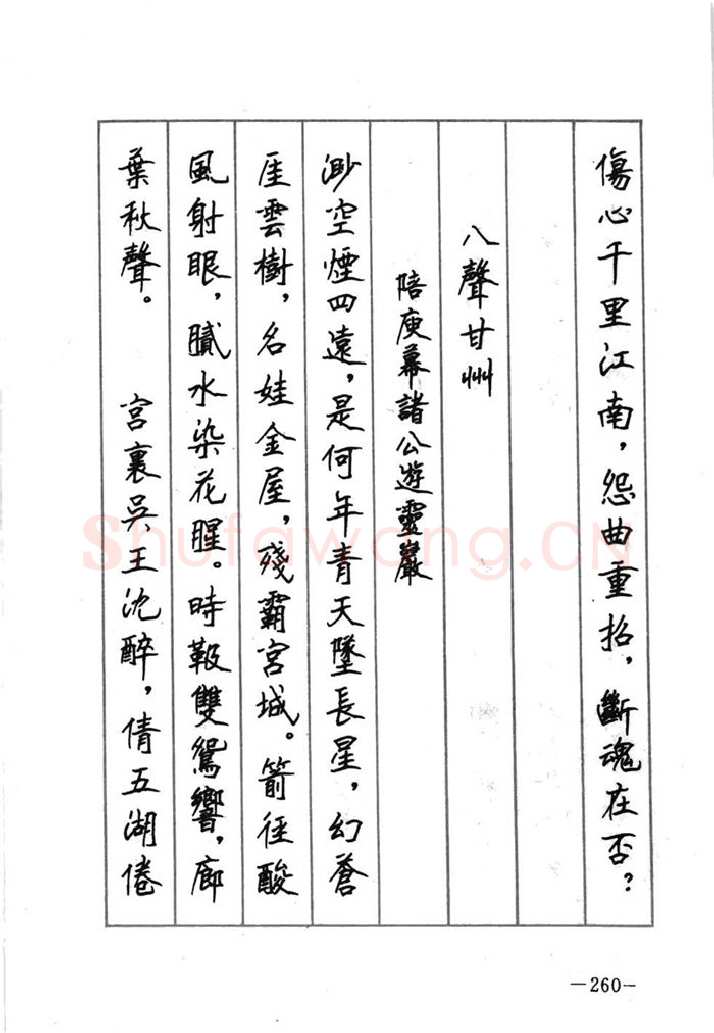 傷心千里江南，怨曲重招，斷魂在否？
八聲甘州
陪庾幕諸公遊靈巖
渺空煙四遠，是何年青天墜長星，幻蒼
厓雲樹，名娃金屋，殘霸宮城。箭徑酸
風射眼，膩水染花腥。時靸雙鴛響，廊
葉秋聲。　宮裏吳王沈醉，倩五湖倦
Shufawang.CN
—260—